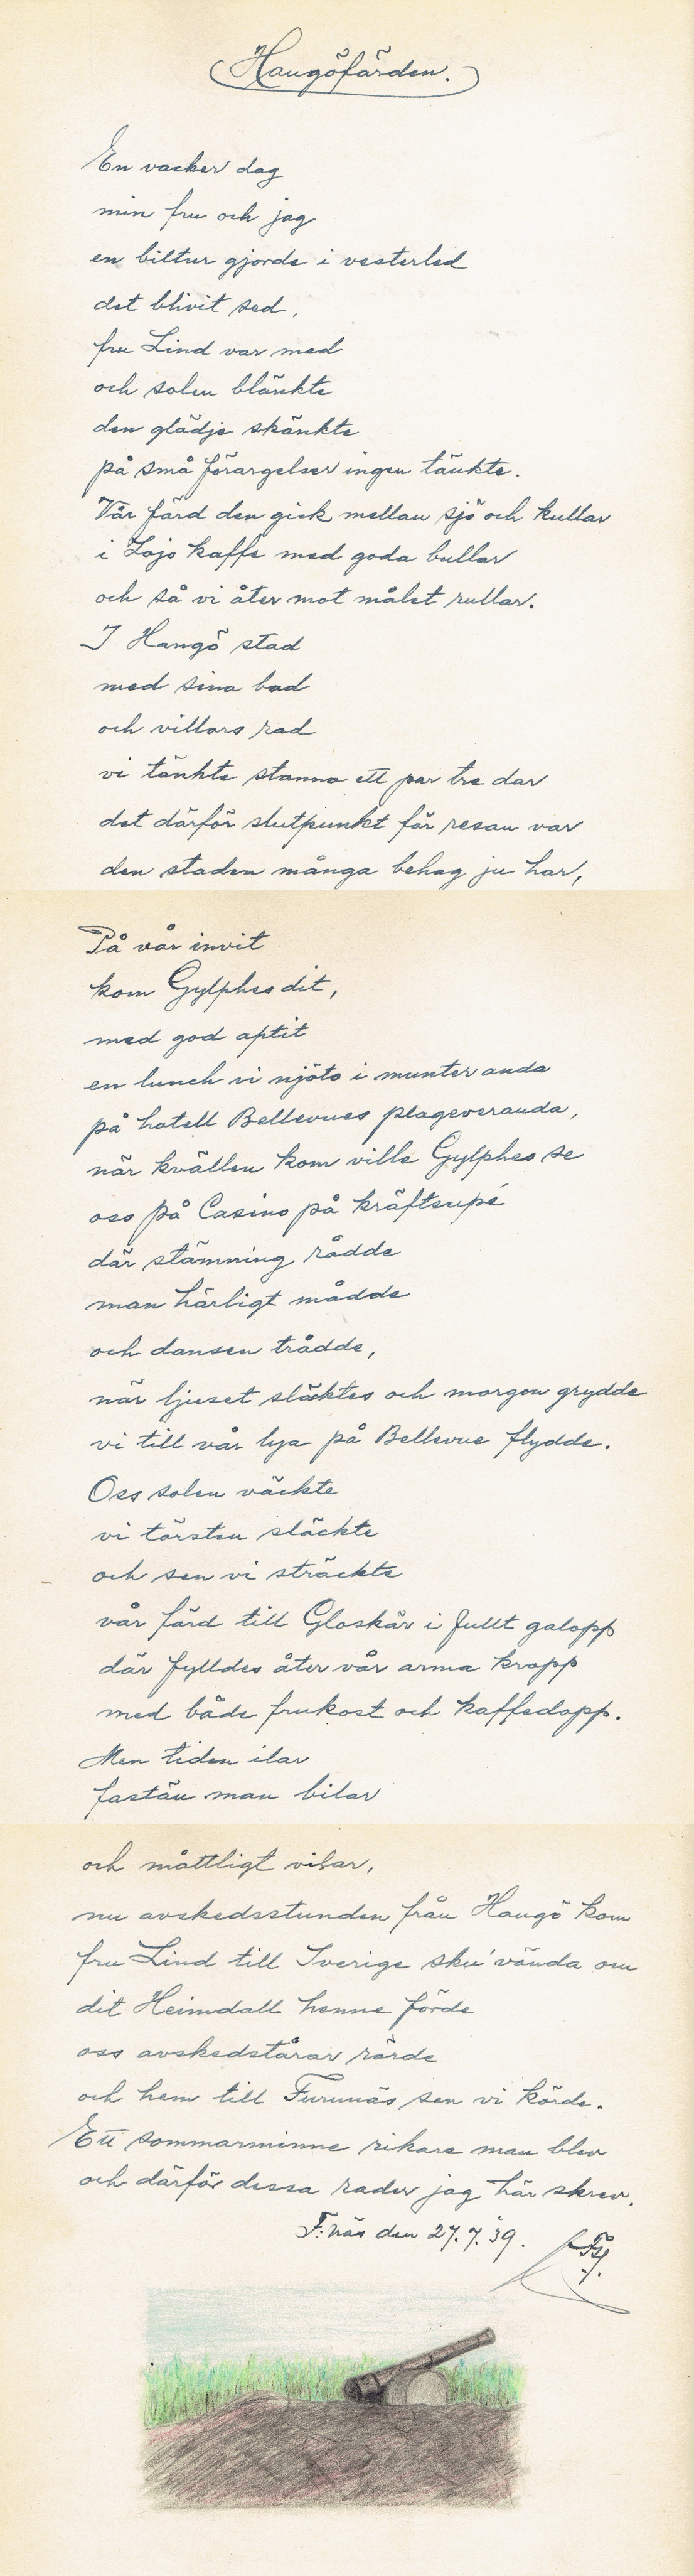 Hangöfärden.
En vacker dag
min fru och jag
en biltur gjorde i vesterled
det blivit sed,
fru Lind var med
och solen blänkte
den glädje skänkte
på små förargelser ingen tänkte.
Vår färd den gick mellan sjö och kullar
i Lojo kaffe med goda bullar
och så vi åter mot målet rullar.
I Hangö stad
med sina bad
och villors rad
vi tänkte stanna ett par tre dar
det därför slutpunkt för resan var
den staden många behag ju har,
På vår invit
kom Gylphes dit,
med god aptit
en lunch vi njöto i munter anda
på hotell Bellevues plageveranda,
när kvällen kom ville Gylphes se
oss på Casino på kräftsupé
där stämning rådde
man härligt mådde
och dansen trådde,
när ljuset släcktes och morgon grydde
vi till vår lya på Bellevue flydde.
Oss solen väckte
vi törsten släckte
och sen vi sträckte
vår färd till Gloskär i fullt galopp
där fylldes åter vår arma kropp
med både frukost och kaffedopp.
Men tiden ilar
fastän man bilar
och måttligt vilar,
nu avskedsstunden från Hangö kom
fru Lind till Sverige sku' vända om
dit Heimdall henne förde
oss avskedstårar rörde
och hem till Furunäs sen vi körde.
Ett sommarminne rikare man blev
och därför dessa rader jag här skrev.
F:näs den 27.7.39.